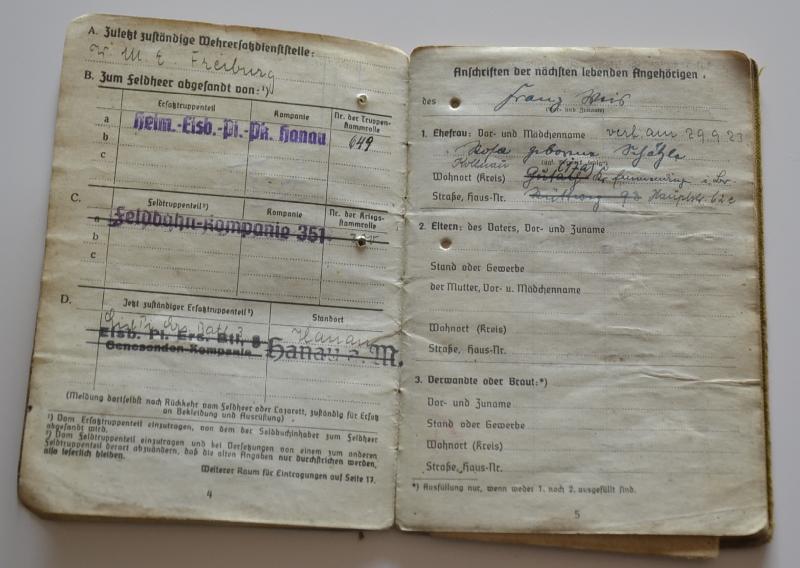 A. Zuletzt zuständige Wehrersatzdienststelle:
W. M. E. Freiburg
B. Zum Feldheer abgesandt von:¹)
Ersatztruppenteil Kompanie Nr. der Truppen-
stammrolle
a Heim.-Eisb.-Pi.-Pk. Hanau 649
b
c
C. Feldtruppenteil²) Kompanie Nr. der Kriegs-
stammrolle
a Feldbahn-Kompanie 351
b
c
D. Jetzt zuständiger Ersatztruppenteil²) Standort
Hanau
Eisb. Pi. Ers. Btl. 3
Genesenden-Kompanie Hanau a. M.
(Meldung dortselbst nach Rückkehr vom Feldheer oder Lazarett, zuständig für Ersatz
an Bekleidung und Ausrüstung)
¹) Vom Ersatztruppenteil einzutragen, von dem der Soldbuchinhaber zum Feldheer
abgesandt wird.
²) Vom Feldtruppenteil einzutragen und bei Versetzungen von einem zum anderen
Feldtruppenteil derart abzuändern, daß die alten Angaben nur durchstrichen werden,
also leserlich bleiben.
Weiterer Raum für Eintragungen auf Seite 17.
4
Anschriften der nächsten lebenden Angehörigen.
des Franz Weis
(Vor- und Zuname)
1. Ehefrau: Vor- und Mädchenname verh. am 29.9.23
Rosa geborene Schätzle
Kollnau
Wohnort (Kreis) Emmending i. Br
Straße, Haus-Nr. Hauptstr. 62c
2. Eltern: des Vaters, Vor- und Zuname
Stand oder Gewerbe
der Mutter, Vor- u. Mädchenname
Wohnort (Kreis)
Straße, Haus-Nr.
3. Verwandte oder Braut:*)
Vor- und Zuname
Stand oder Gewerbe
Wohnort (Kreis)
Straße, Haus-Nr.
*) Ausfüllung nur, wenn weder 1. noch 2. ausgefüllt sind.
5